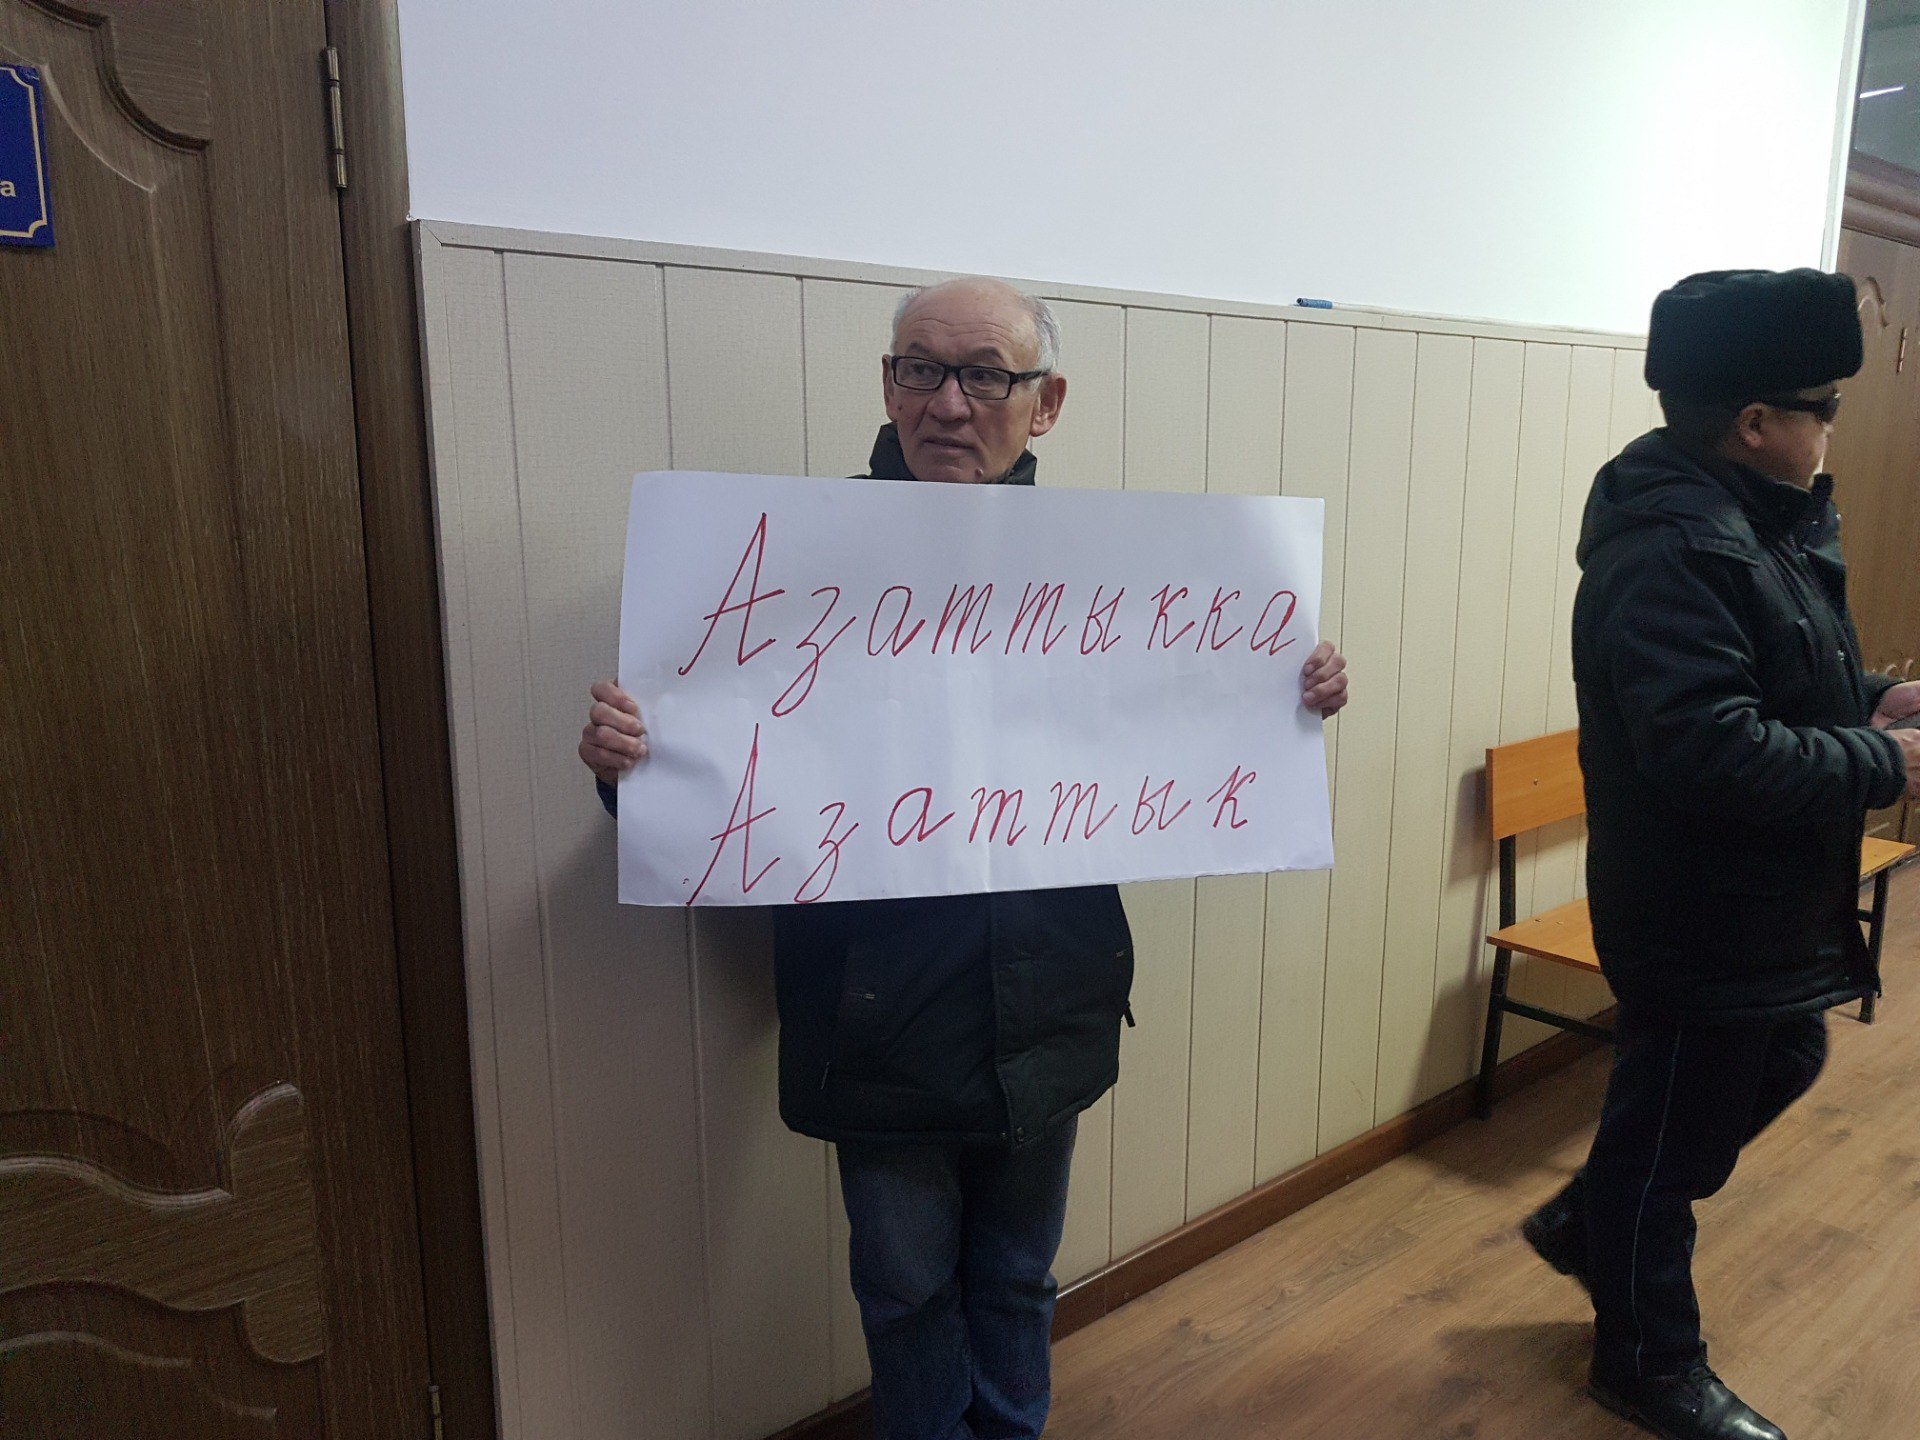 а
Азаттыкка
Азаттык